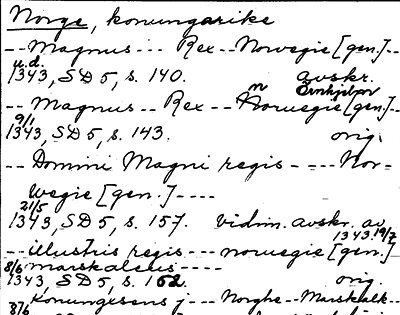 Norge, konungarike
-- Magnus --- Rex -- Norwegie [gen.] --
u.d.
1343, SD 5, s. 140. avskr.
-- Magnus -- Rex -- Noruegie [gen.] --
9/1
1343, SD 5, s. 143. orig.
-- Domini Magni regis ---- Nor-
wegie [gen.] ----
21/5
1343, SD 5, s. 157. vidim. avskr. av
1343 19/7
-- illustris regis --- noruegie [gen.]
8/6 marskalcus ----
1343, SD 5, s. 162. orig.
8/6 Konungesens j --- Norghe -- Marskalk --